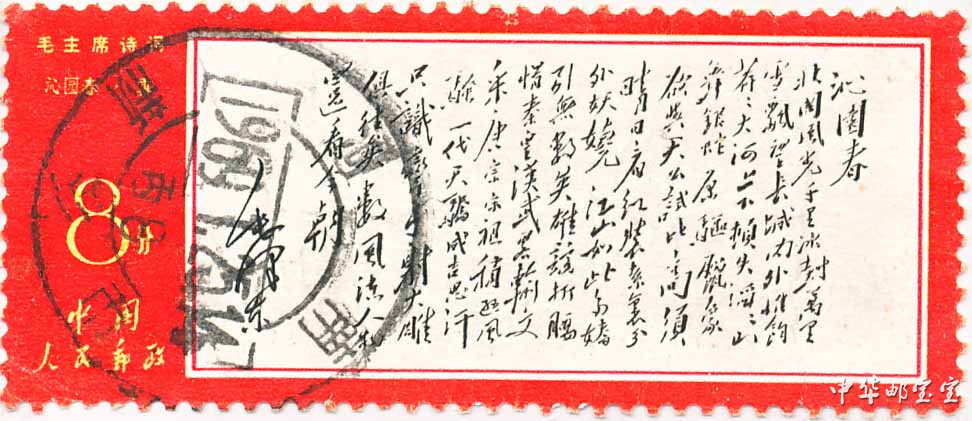 毛主席诗词
沁园春 雪
8分
中国
人民邮政
沁園春
北國風光千里冰封萬里
雪飄望長城内外惟餘
莽々大河上下頓失滔々山
舞銀蛇原驅臘象
欲與天公試比高須
晴日看紅裝素裹分
外妖嬈江山如此多嬌
引無數英雄競折腰
惜秦皇漢武略輸文
采唐宗宋祖稍遜風
騷一代天驕成吉思汗
只識彎弓射大雕
俱往矣數風流人物
還看今朝
毛澤東
中华邮宝宝